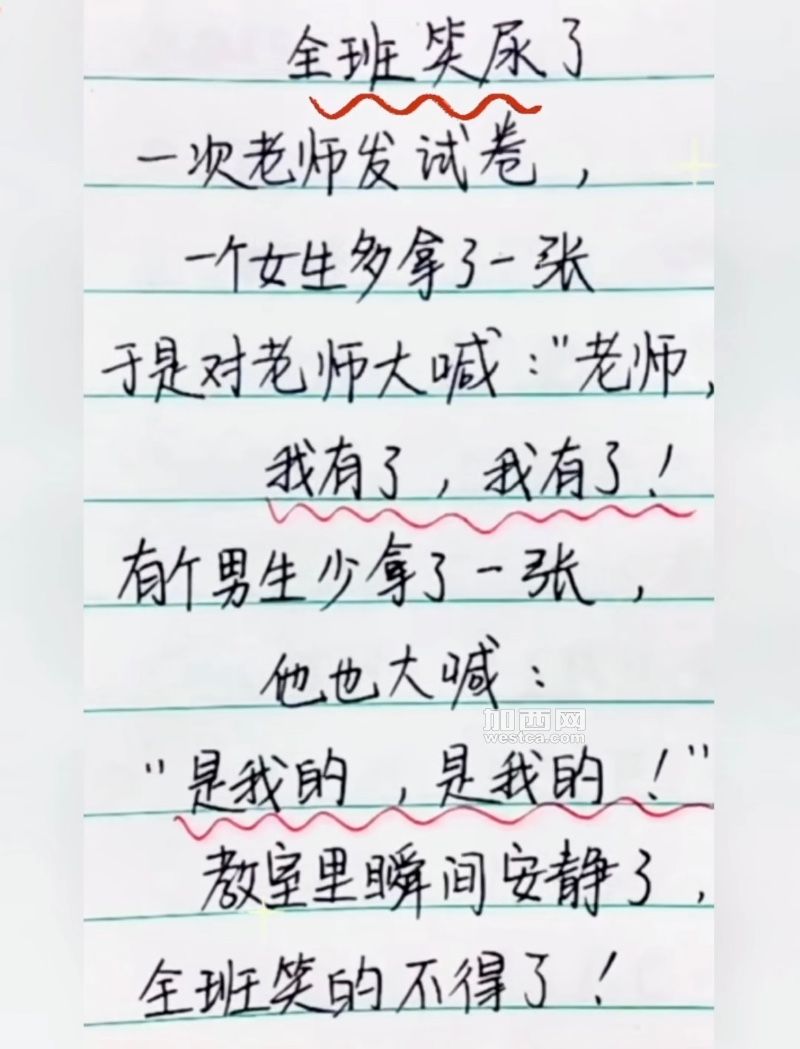 全班笑尿了
一次老师发试卷，
一个女生多拿了一张
于是对老师大喊："老师，
我有了，我有了！
有个男生少拿了一张，
他也大喊：
加西网
westca.com
"是我的，是我的！"
教室里瞬间安静了，
全班笑的不得了！